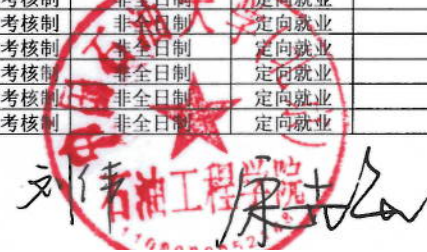 考核制 非全日制 定向就业
考核制 非全日制 定向就业
考核制 非全日制 定向就业
考核制 非全日制 定向就业
考核制 非全日制 定向就业
考核制 非全日制 定向就业
中国石油大学(北京)
石油工程学院
刘伟